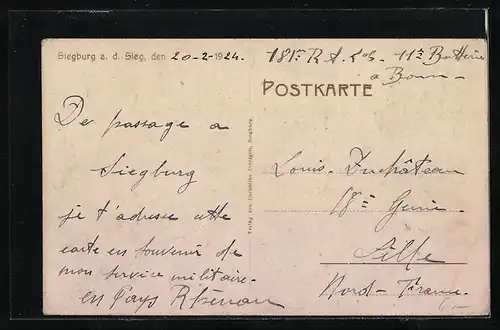 Siegburg a. d. Sieg, den 20-2-1924.
181e R A. 11e Batterie
a Bonn
POSTKARTE
De passage a
Siegburg
je t'adresse cette
carte en souvenir de
mon service militaire.
en Pays Rhénan
Louis. Duchâteau
18e Génie.
Lille
Nord - France.